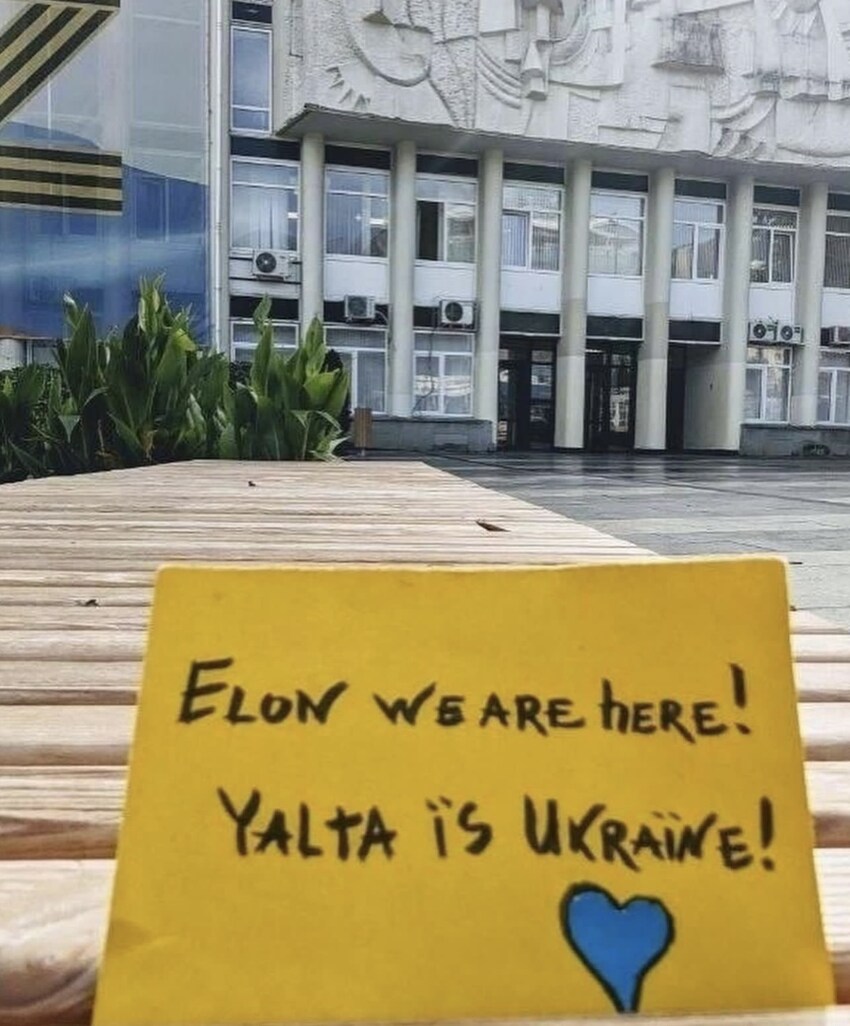 ELON WE ARE hERE!
YALTA ïS UKRAïNE!